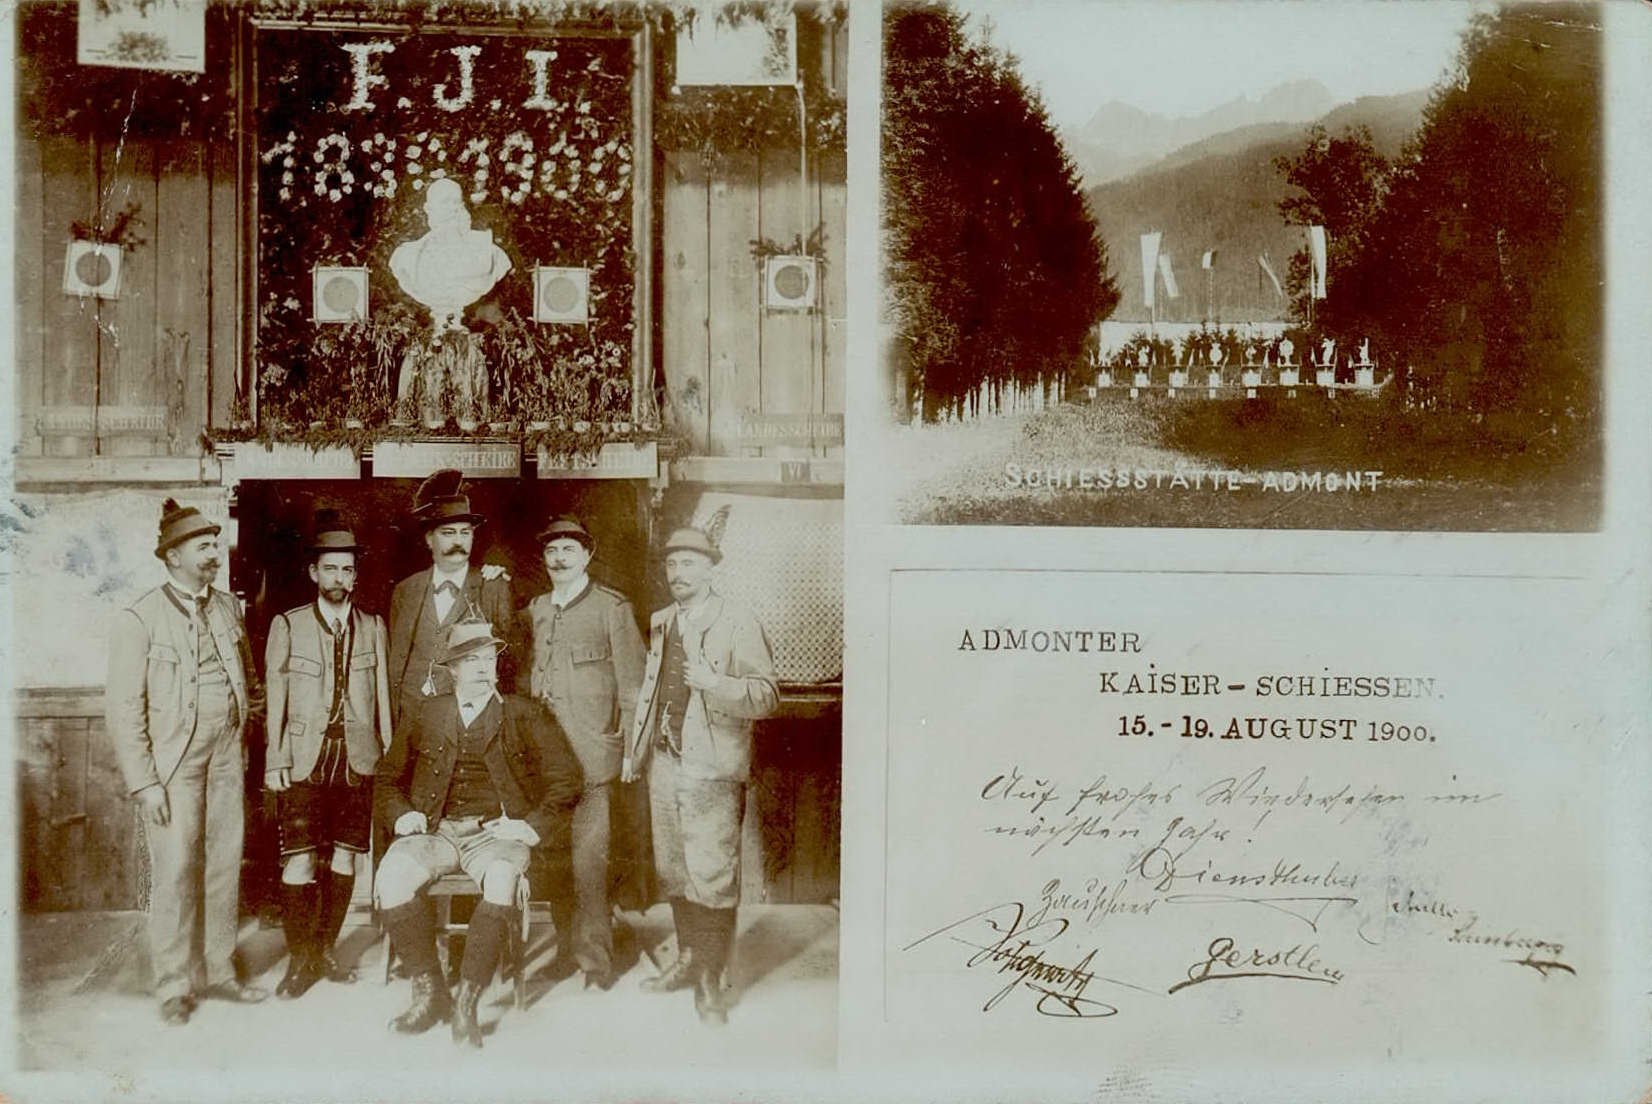 F. J. I.
18 1900
LANDESSCHEIBE
FESTSCHEIBE
VI
SCHIESSSTÄTTE-ADMONT
ADMONTER
KAISER-SCHIESSEN.
15.-19. AUGUST 1900.
Auf frohes Wiedersehen im
nächsten Jahr!
Diensthuber
Zauschner
Gerstle